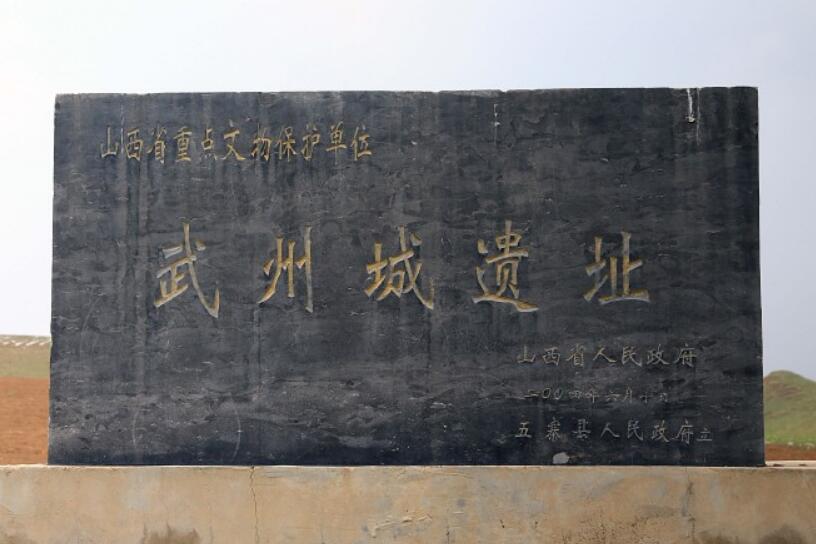 山西省重点文物保护单位
武州城遗址
山西省人民政府
二〇〇四年六月十日
五寨县人民政府立